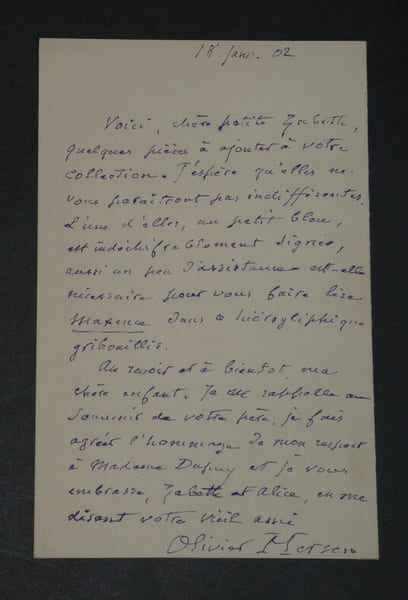 18 janv. 02
Voici, chère petite Zabeth,
quelques pièces à ajouter à votre
collection. J'espère qu'elles ne
vous paraîtront pas indifférentes.
L'une d'elles, un petit bleu,
est indéchifrablement signée,
aussi un peu d'assistance est-elle
nécessaire pour vous faire lire
Maxence dans ce hiéroglyphique
gribouillis.
Au revoir et à bientôt, ma
chère enfant. Je me rappelle au
souvenir de votre père, je fais
agréer l'hommage de mon respect
à Madame Dupuy et je vous
embrasse, Zabeth et Alice, en me
disant votre vieil ami
Olivier Merson